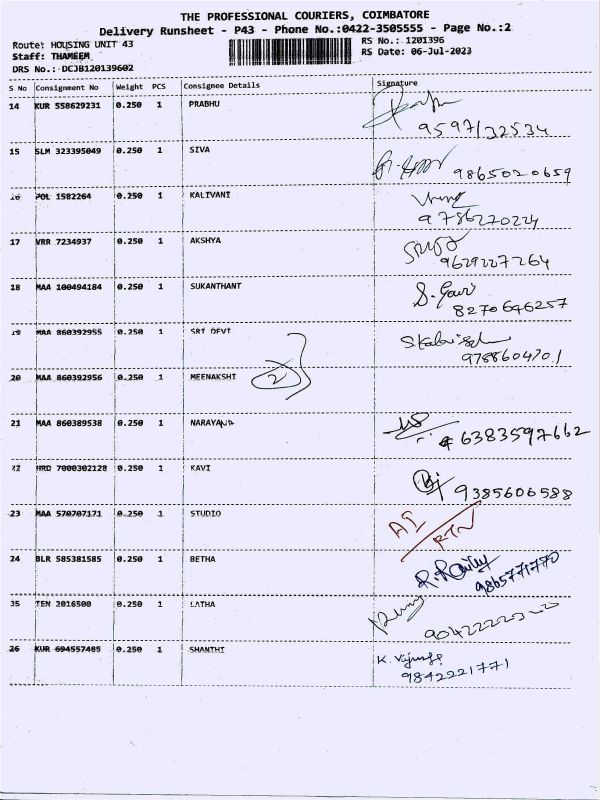 THE PROFESSIONAL COURIERS, COIMBATORE
Delivery Runsheet - P43 - Phone No.:0422-3505555 - Page No.:2
Route: HOUSING UNIT 43 RS No.: 1201396
Staff: THAMEEM RS Date: 06-Jul-2023
DRS No.: DCJB120139602
S No Consignment No Weight PCS Consignee Details Signature
14 KUR 558629231 0.250 1 PRABHU
9597132534
15 SLM 323395049 0.250 1 SIVA
9865020659
16 POL 1582264 0.250 1 KALIVANI
9786270224
17 VRR 7234937 0.250 1 AKSHYA
9629227264
18 MAA 100494184 0.250 1 SUKANTHANT S. Gowri
8270646257
19 MAA 860392955 0.250 1 SRI DEVI
9788604701
20 MAA 860392956 0.250 1 MEENAKSHI 2
21 MAA 860389538 0.250 1 NARAYANA
6383597662
22 HRD 7000302128 0.250 1 KAVI
9385606588
23 MAA 570707171 0.250 1 STUDIO
RTN
24 BLR 585381585 0.250 1 BETHA
9865771770
25 TEN 2016500 0.250 1 LATHA
26 KUR 694557485 0.250 1 SHANTHI
9842221771